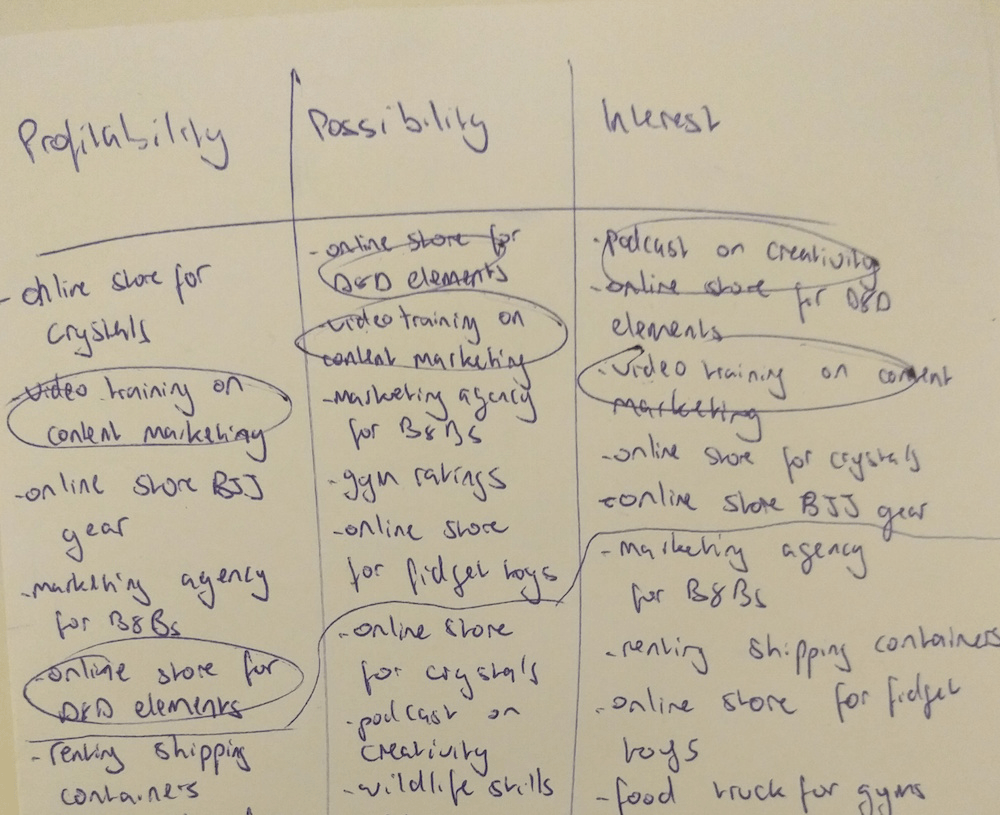 Profitability
- online store for
crystals
- video training on
content marketing
- online store BJJ
gear
- marketing agency
for B&Bs
- online store for
D&D elements
- renting shipping
containers
Possibility
- online store for
D&D elements
- video training on
content marketing
- marketing agency
for B&Bs
- gym ratings
- online store
for fidget toys
- online store
for crystals
- podcast on
creativity
- wildlife skills
Interest
- podcast on creativity
- online store for D&D
elements
- video training on content
marketing
- online store for crystals
- online store BJJ gear
- marketing agency
for B&Bs
- renting shipping containers
- online store for fidget
toys
- food truck for gyms